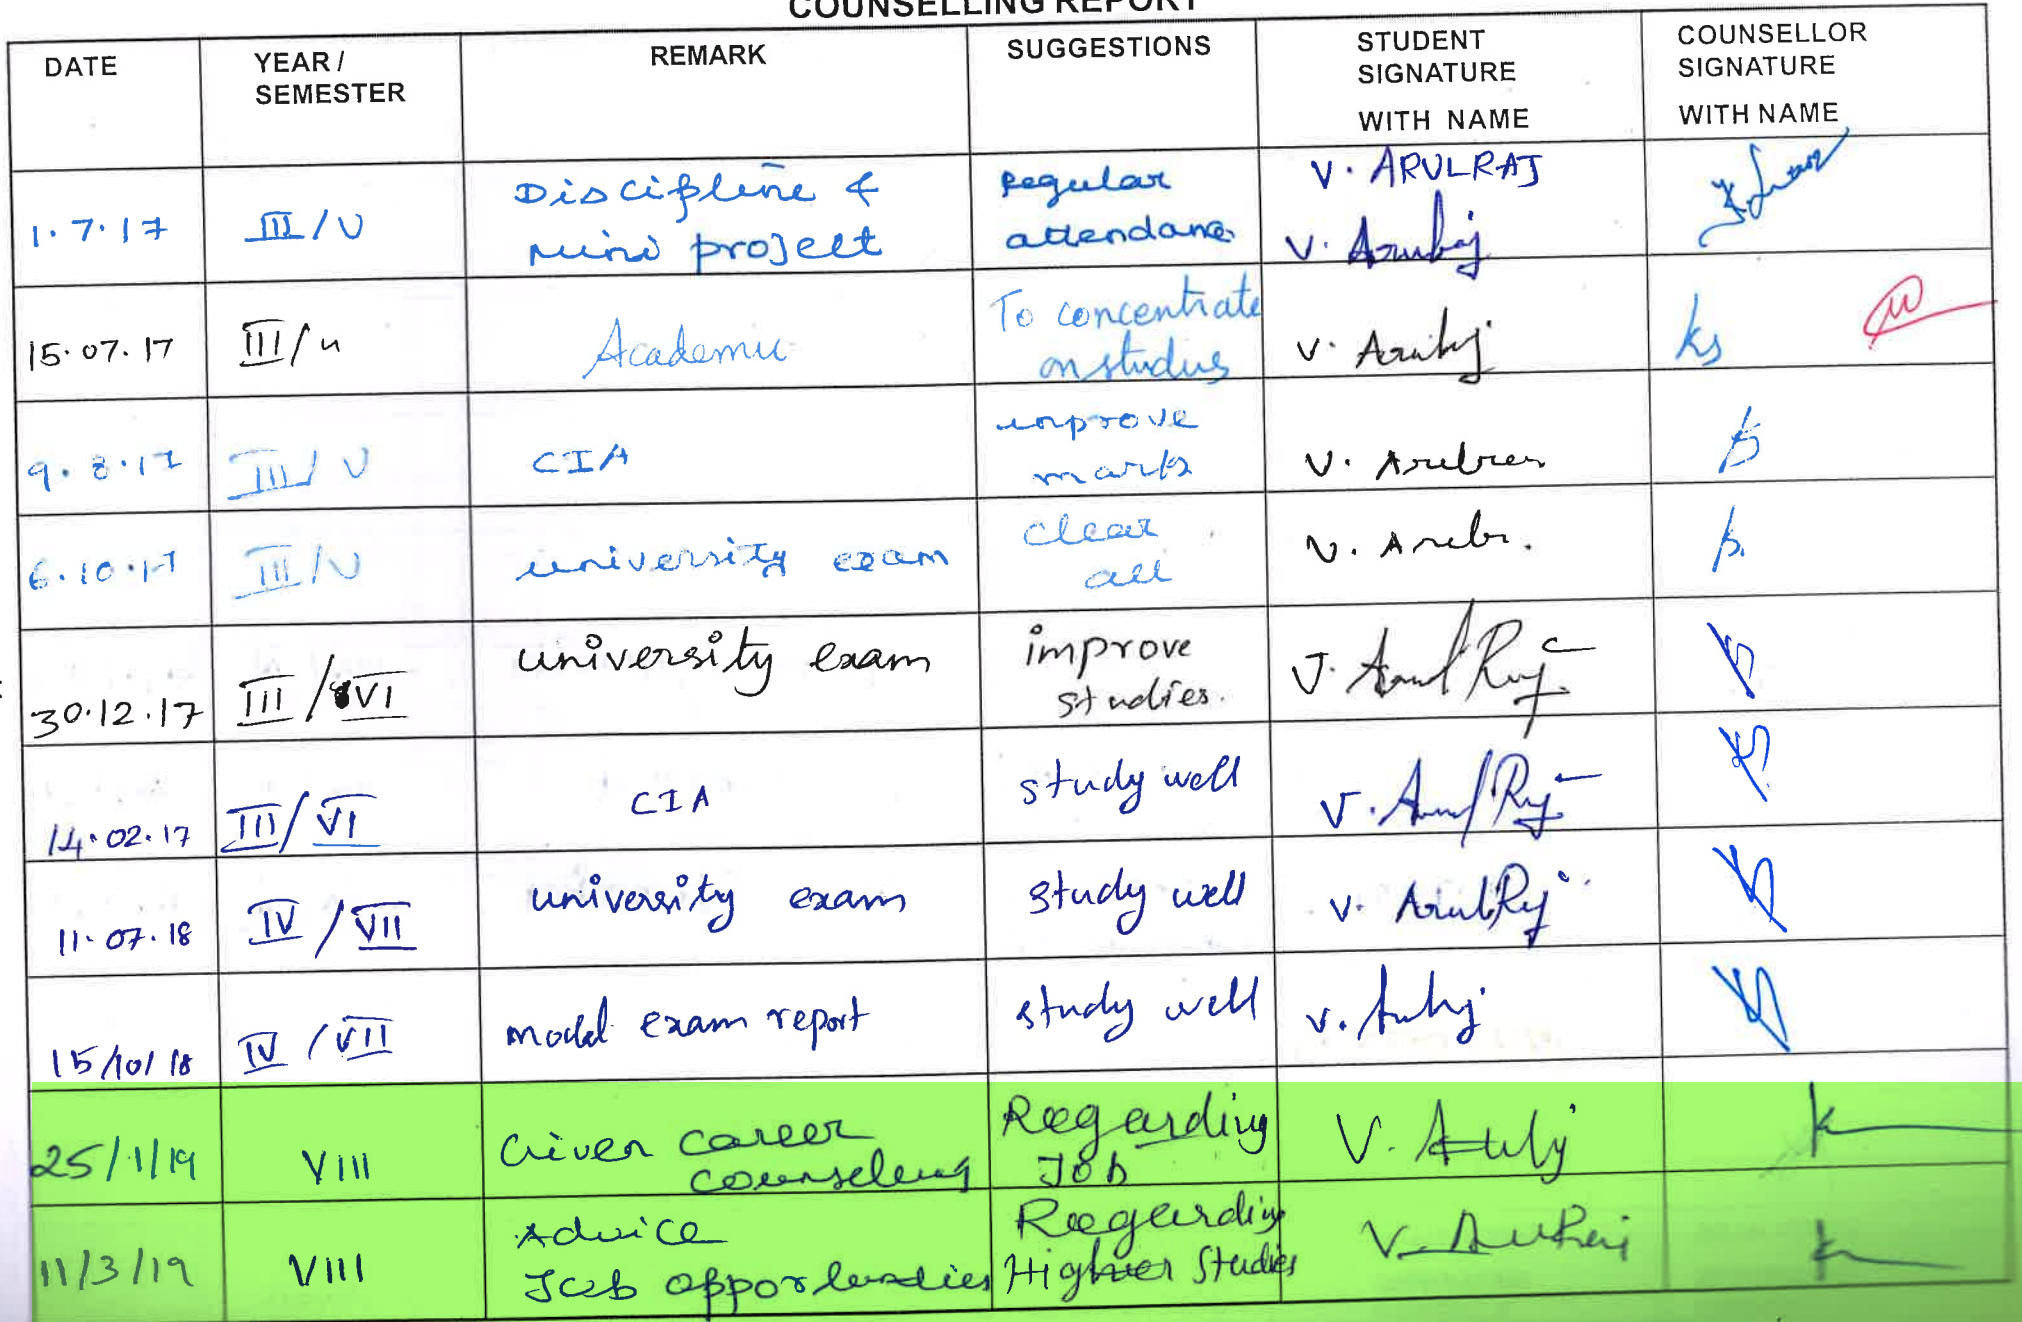 COUNSELLING REPORT
DATE
YEAR /
SEMESTER
REMARK
SUGGESTIONS
STUDENT
SIGNATURE
WITH NAME
COUNSELLOR
SIGNATURE
WITH NAME
1.7.17
III/V
Discipline &
mini project
regular
attendance
V. ARULRAJ
V. Arulraj
15.07.17
III/
Academic
To concentrate
on studies
V. Arulraj
ks
9.8.17
III/V
CIA
improve
marks
V.
6.10.17
III/V
university exam
clear
all
V.
30.12.17
III/VI
university exam
improve
studies.
V. Arul Raj
14.02.17
III/VI
CIA
study well
V. Arul Raj
11.07.18
IV/VII
university exam
study well
V. ArulRaj
15/10/18
IV/VII
model exam report
study well
V.
25/1/19
VIII
Given career
counseling
Regarding
Job
V.
11/3/19
VIII
Advice
Job
Regarding
Higher Studies
V.